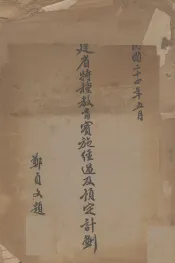 民國二十四年五月
建省特種教育實施經過及預定計劃
鄭貞文題